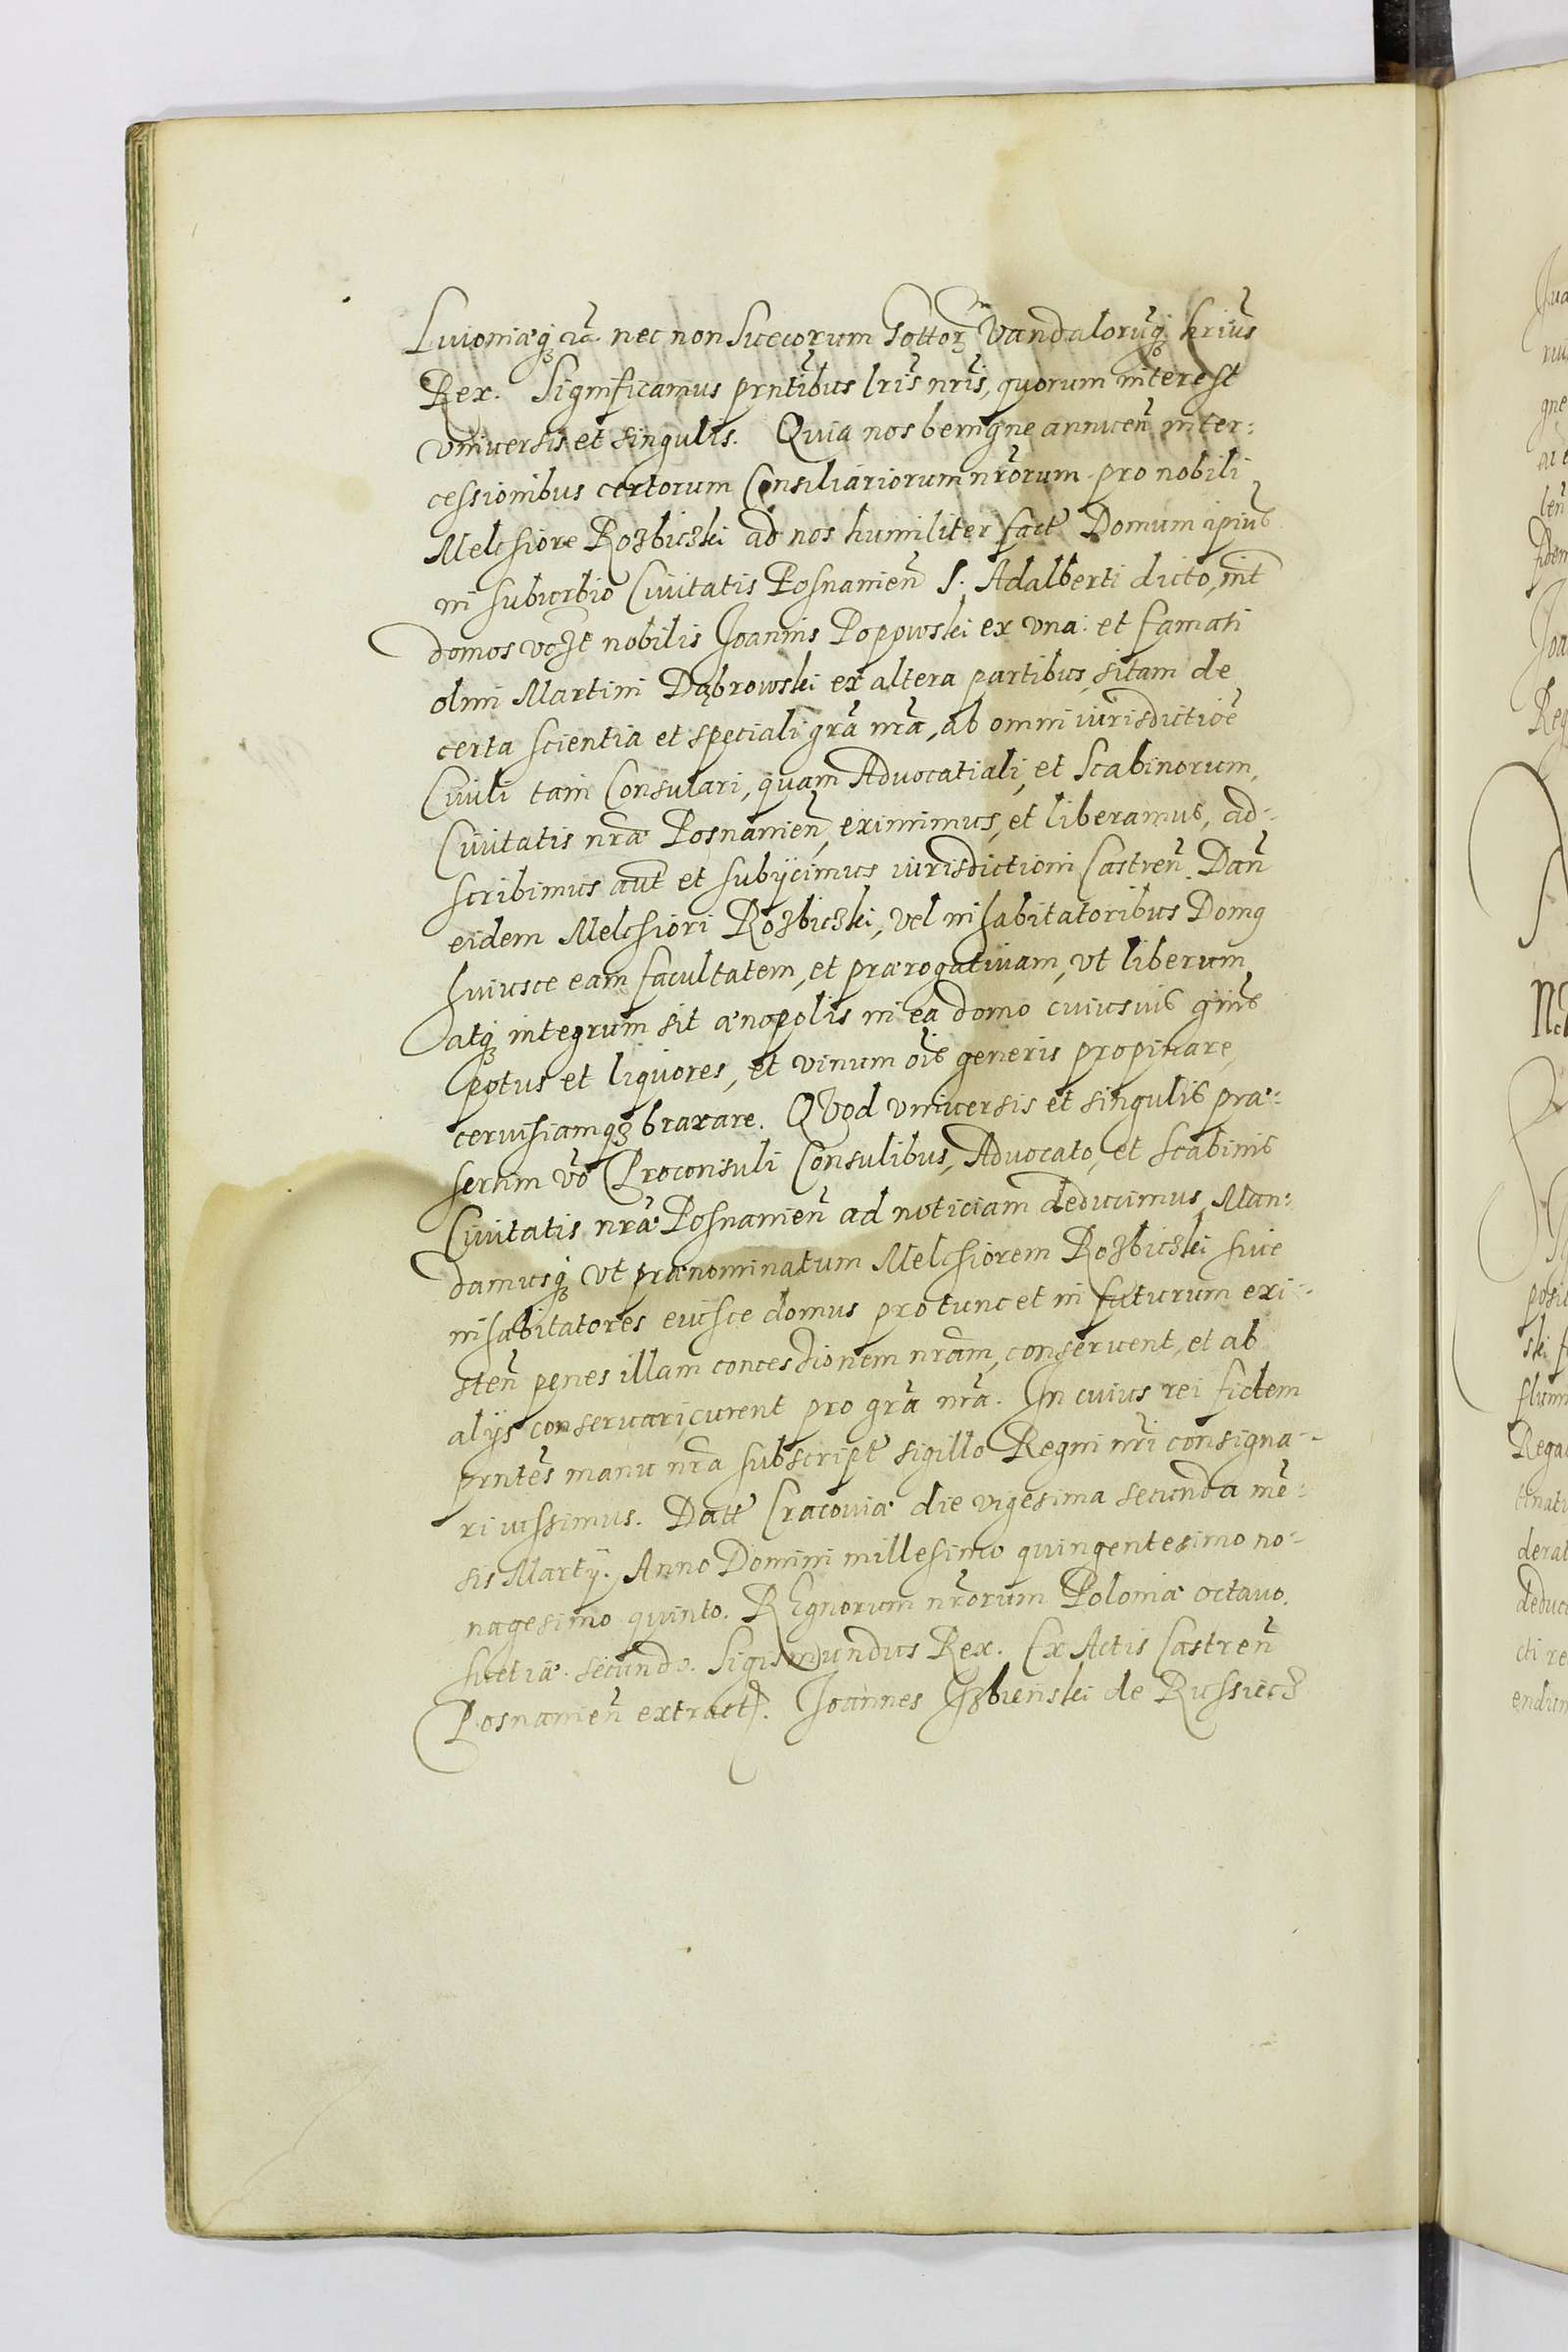 Livoniæq₃ ꝛc̃. nec non Suecorum Gottoꝝ Vandalorum̃q₃ hrius̃
Rex. Significamus prntĩbus lris̃ nris̃, quorum interest
vniversis et singulis. Quia nos benigne annuen̄ inter:
cessionibus certorum Consiliariorum nr̃orum pro nobili
Melchiore Rozbiczki ad nos humiliter fact̃ Domum ipius̃
in suburbio Civitatis Posnanien̄ S. Adalberti dicto, int̃
domos
nobilis Joannis Popowski ex vna: et famati
olim Martini Dąbrowski ex altera partibus, sitam de
certa scientia et speciali grã nrã, ab omni iurisdictioẽ
Civili tam Consulari, quam Advocatiali, et Scabinorum,
Civitatis nrãæ Posnanien̄, eximimus, et liberamus, ad-
scribimus aut̃ et subijcimus iurisdictioni Castren̄. Dan̄
eidem Melchiori Rozbiczki, vel inhabitatoribus Domꝰ
huiusce eam facultatem, et prærogativam, vt liberum
atq₃ integrum sit œnopolis in ea domo cuiusvis gnis̃
potus et liquores, et vinum ois̃ generis propinare,
cervisiamq₃ braxare. QVod vniversis et singulis præ-
sertim võ Proconsuli Consulibus, Advocato, et Scabinis
Civitatis nrãæ Posnanien̄ ad noticiam deducimus, Man:
damusq₃ vt prænominatum Melchiorem Rozbiczki sive
inhabitatores eiusce domus pro tunc et in futurum exi-
sten̄ penes illam concessionem nrãm, conservent, et ab
alijs conservari, curent pro grã nrã. In cuius rei fidem
prntẽs manu nrã subscript̃ sigillo Regni nrĩ consigna-
ri iussimus. Datt̃ Cracoviæ die vigesima secunda mẽ-
sis Martij. Anno Domini millesimo quingentesimo no-
nagesimo quinto. REgnorum nr̃orum Poloniæ octavo.
Suetiæ. secundo. Sigismundus Rex. Ex Actis Castren̄
Posnanien̄ extract̃. Joannes Gzbienski de Russiecz